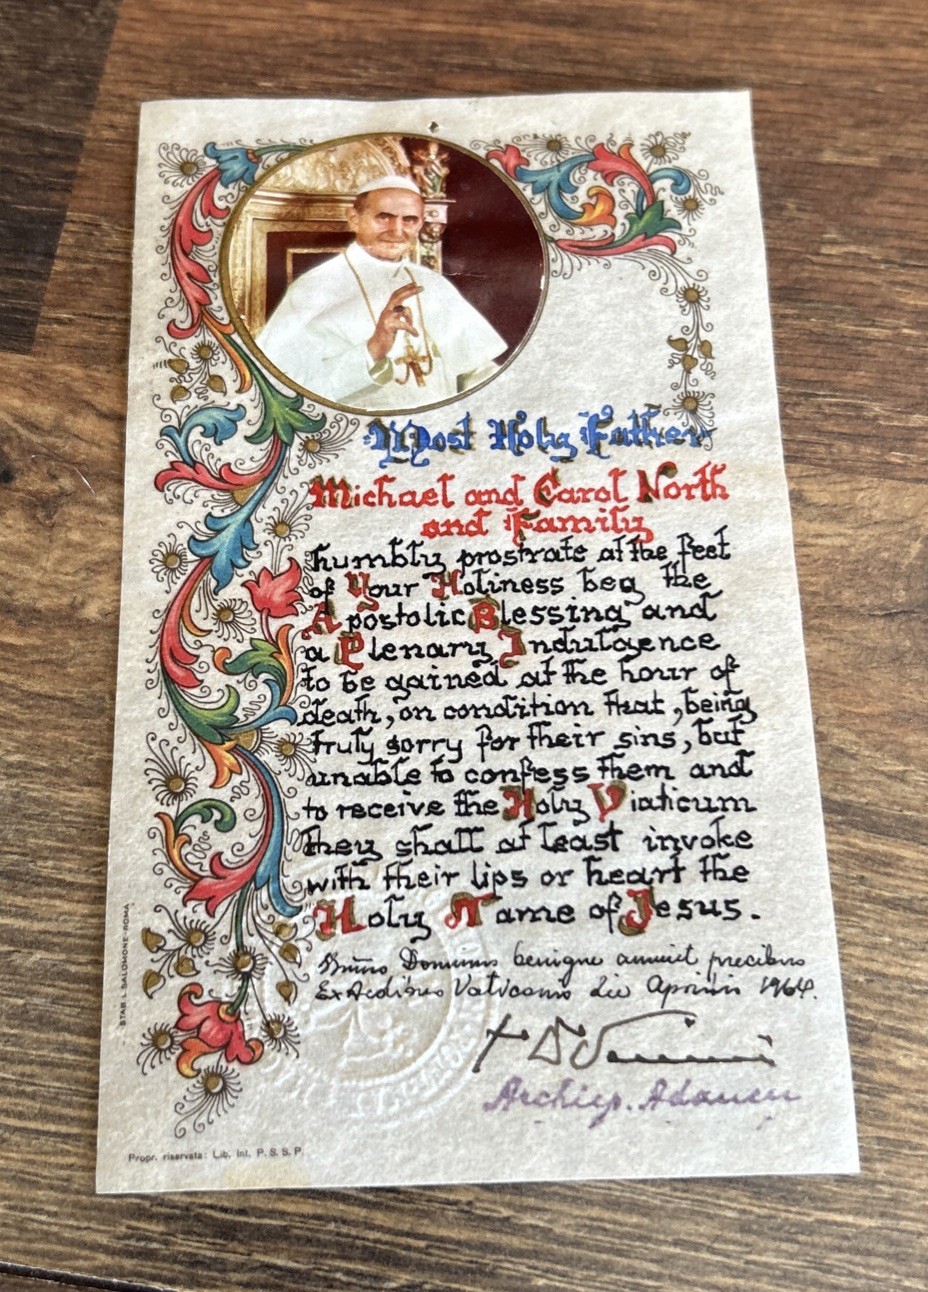 Most Holy Father
Michael and Carol North
and Family
humbly prostrate at the feet
of Your Holiness beg the
Apostolic Blessing and
a Plenary Indulgence
to be gained at the hour of
death, on condition that, being
truly sorry for their sins, but
unable to confess them and
to receive the Holy Viaticum
they shall at least invoke
with their lips or heart the
Holy Name of Jesus.
benigne annuit precibus
Vaticanis die Aprilis 1964.
Archiep.
STAB. L. SALOMONE-ROMA
Propr. riservata: Lib. Int. P. S. S. P.